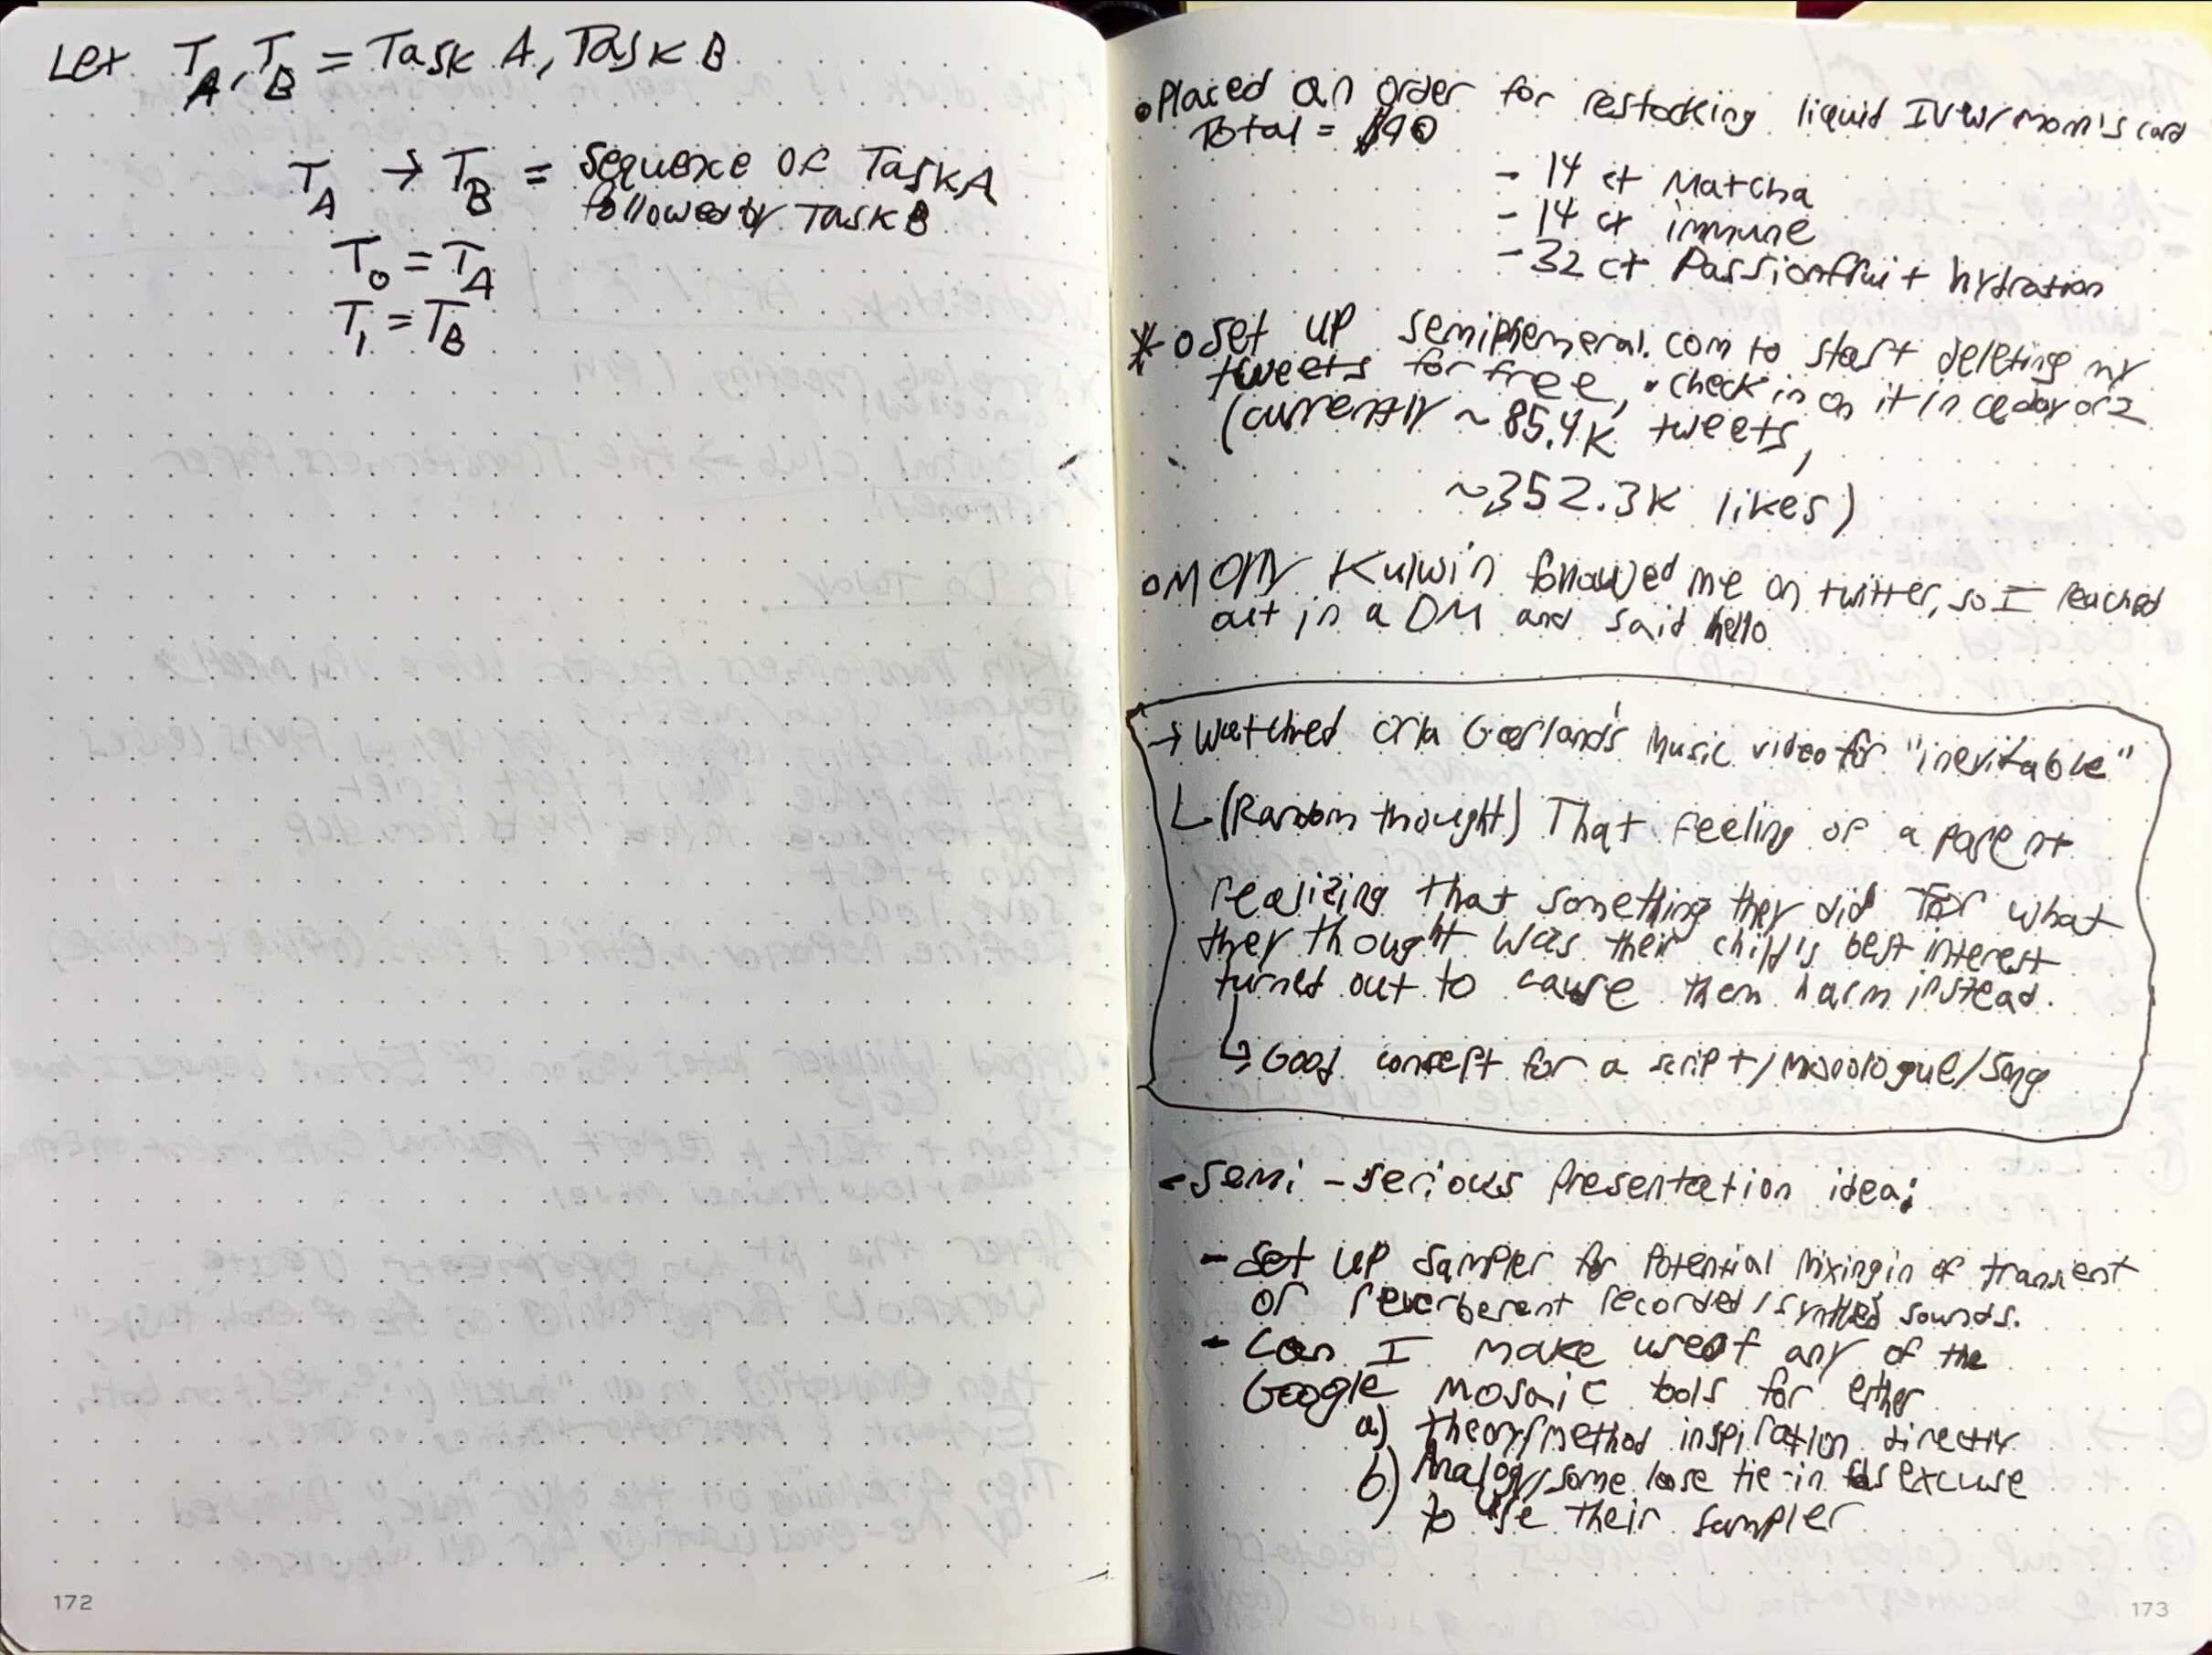 Let T_A, T_B = Task A, Task B
T_A → T_B = Sequence of Task A
followed by Task B
T_0 = T_A
T_1 = T_B
172
• Placed an order for restocking liquid IV w/ mom's card
Total = $90
- 14 ct Matcha
- 14 ct immune
- 32 ct Passionfruit hydration
* o Set up semiphemeral.com to start deleting my
tweets for free, • check in on it in a day or 2
(currently ~85.4K tweets,
~352.3K likes)
o Molly Kulwin followed me on twitter, so I reached
out in a DM and said hello
→ Watched Orla Gartland's music video for "inevitable"
↳ (Random thought) That feeling of a parent
realizing that something they did for what
they thought was their child's best interest
turned out to cause them harm instead.
↳ Good concept for a script/monologue/song
- Semi-serious presentation idea:
- Set up sampler for potential mixing in of transient
or reverberent recorded/synthed sounds.
- Can I make use of any of the
Google mosaic tools for either
a) theory/method inspiration directly
b) Analogy/some lose tie-in as excuse
to use their sampler
173